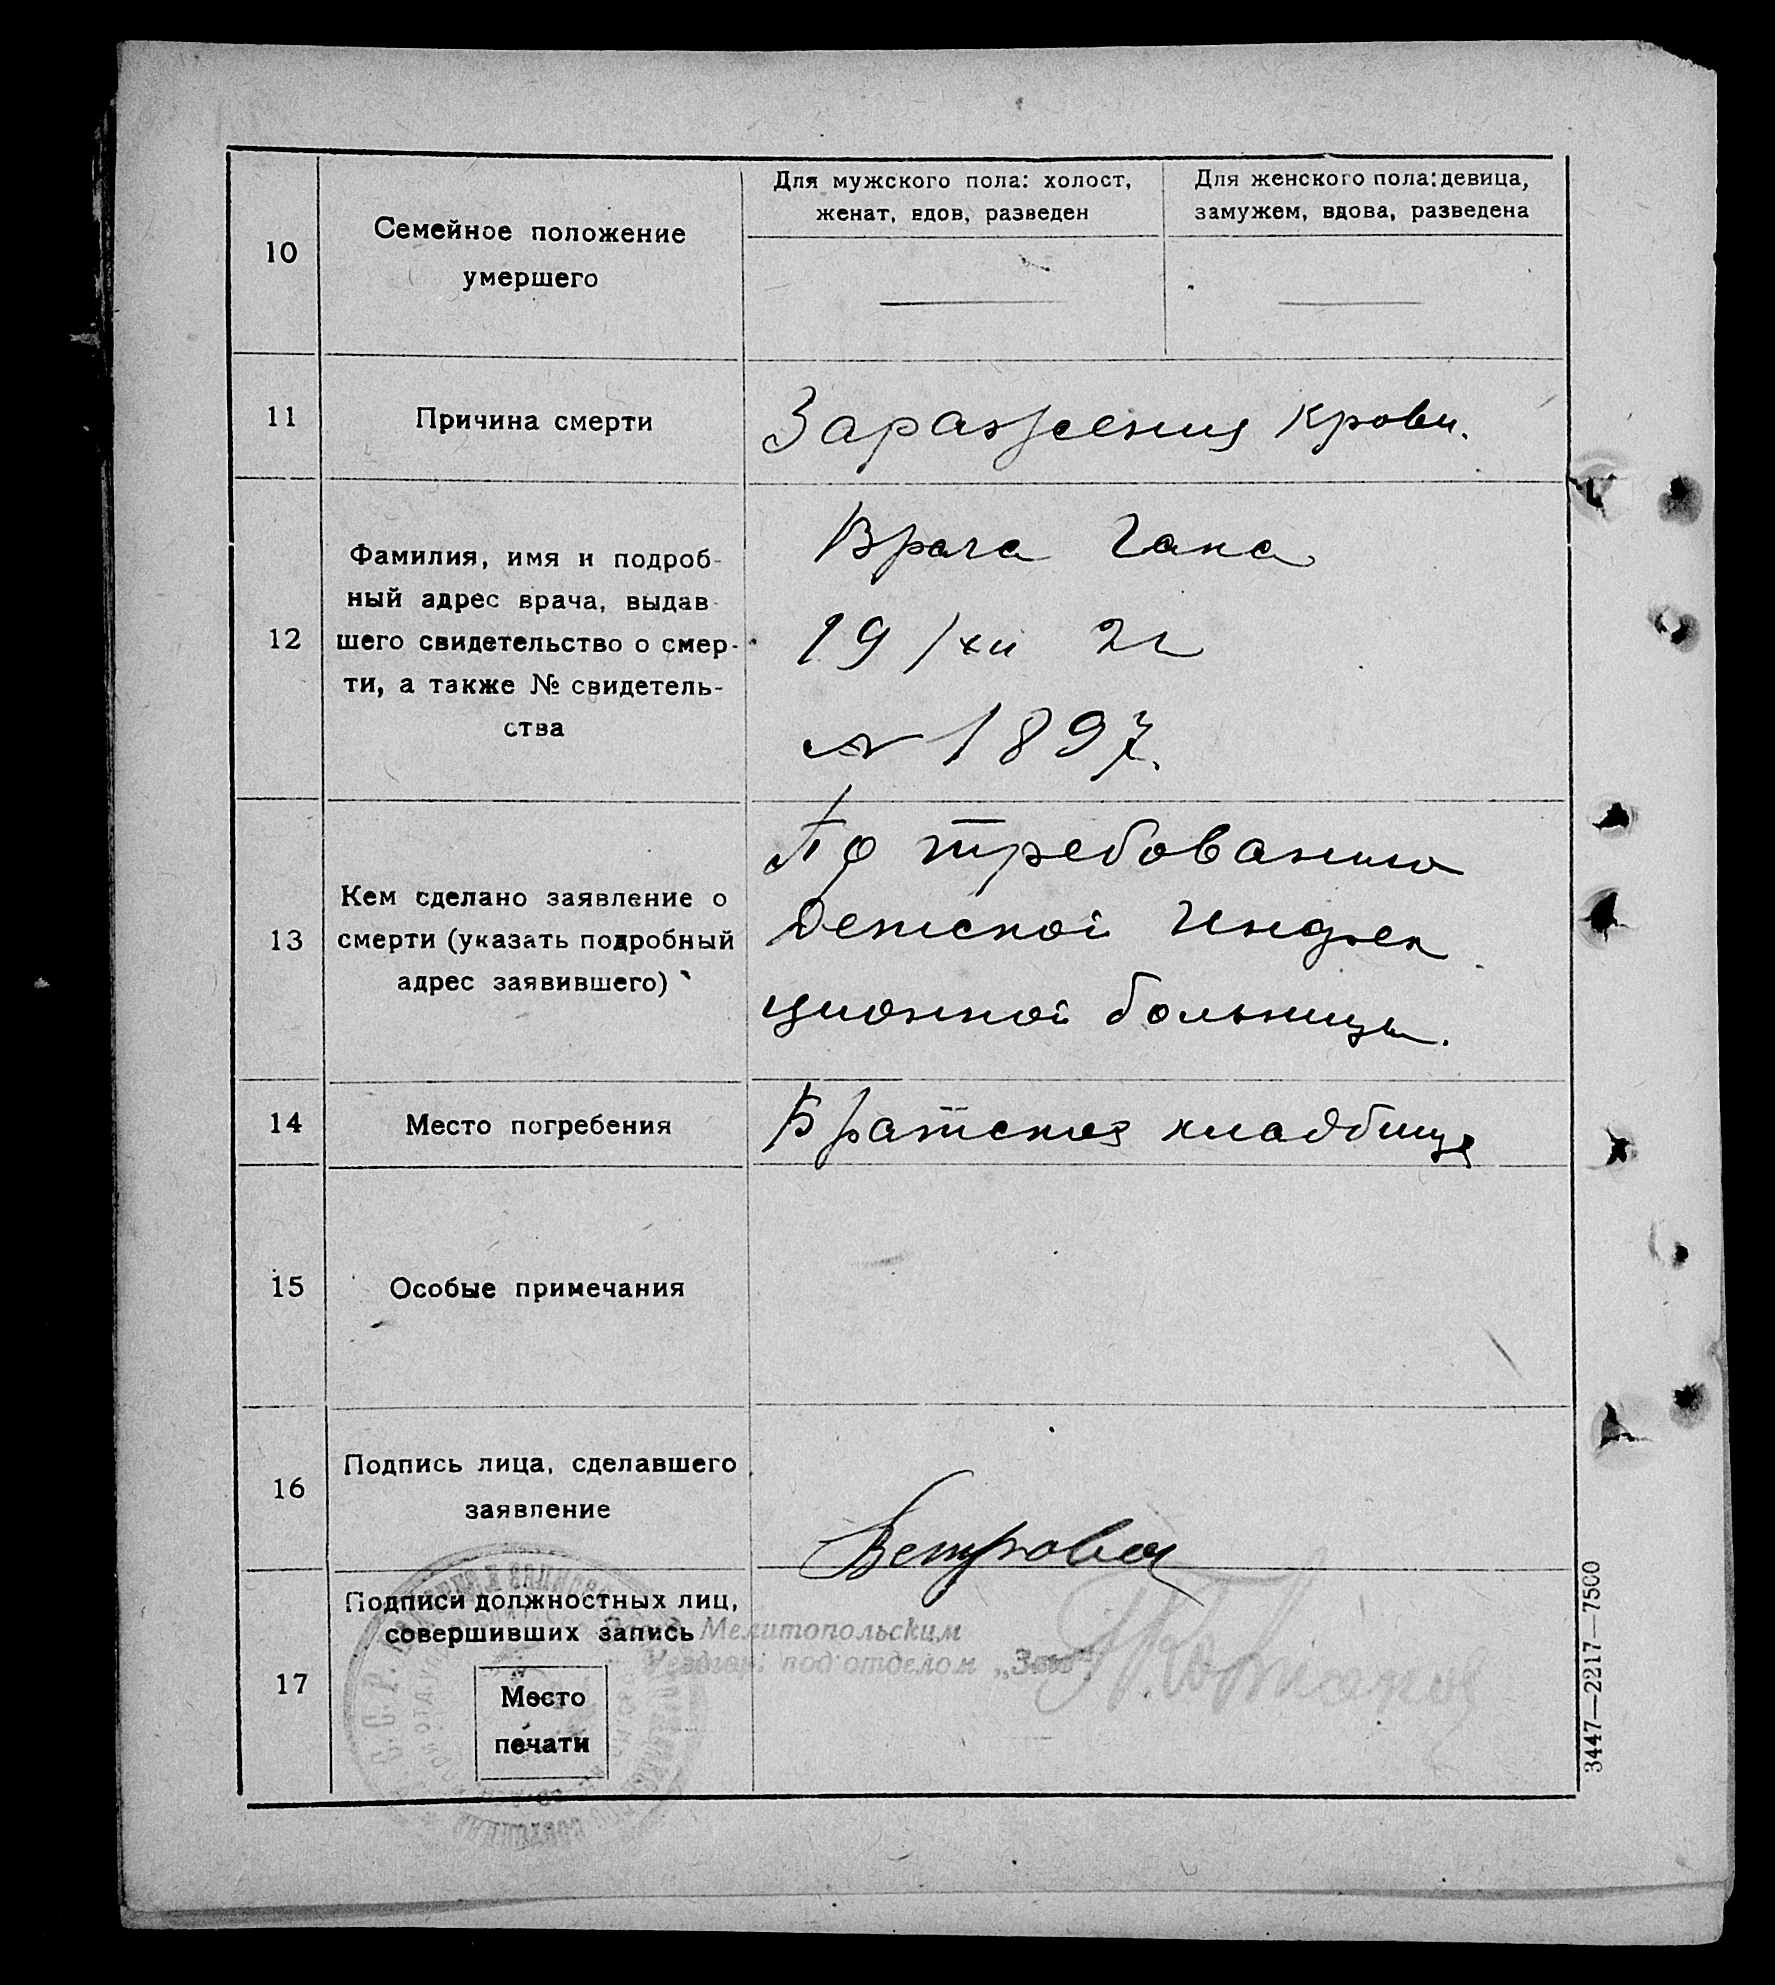 10
Семейное положение
умершего
Для мужского пола: холост,
женат, вдов, разведен
Для женского пола: девица,
замужем, вдова, разведена
11
Причина смерти
Заражения крови.
12
Фамилия, имя и подроб-
ный адрес врача, выдав-
шего свидетельство о смер-
ти, а также № свидетель-
ства
Врача Гана
19/XII 21
N 1897.
13
Кем сделано заявление о
смерти (указать подробный
адрес заявившего)
По требованию
Детской Инфек
ционной больницы.
14
Место погребения
Братское кладбище
15
Особые примечания
16
Подпись лица, сделавшего
заявление
Ветрова
17
Подписи должностных лиц,
совершивших запись
Место
печати
Мелитопольским
под'отделом „Загс“
3447—2217—7500